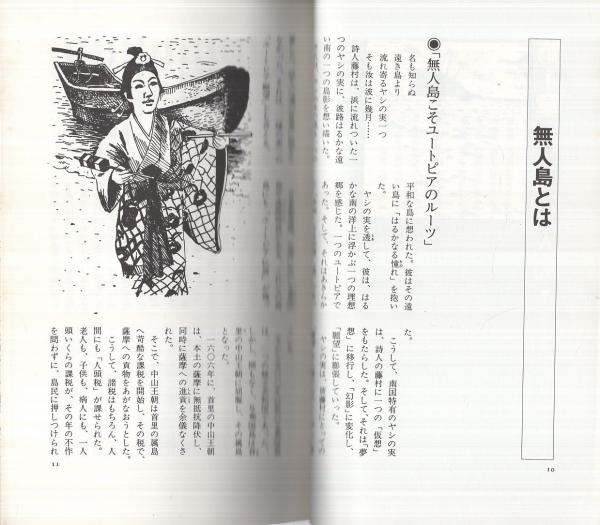 無人島とは
●「無人島こそユートピアのルーツ」
名も知らぬ
遠き島より
流れ寄るヤシの実一つ
そも汝は波に幾月……
詩人藤村は、浜に流れついた一
つのヤシの実に、波路はるかな遠
い南の一つの島影を想い描いた。
平和な島に想われた。彼はその遠
い島に「はるかなる憧れ」を抱い
た。
ヤシの実を透して、彼は、はる
かな南の洋上に浮かぶ一つの理想
郷を感じた。一つのユートピアで
あった。そして、それはあきらか
た。
こうして、南国特有のヤシの実
は、詩人の藤村に一つの「仮想」
をもたらした。そして、それは「夢
想」に移行し、「幻影」に変化し、
「願望」に膨張していった。
ヤシの実は、
10
里の中山王朝に
となった。
一六〇六年に、首里の中山王朝
は、本土の薩摩に無抵抗降伏し、
同時に薩摩への進貢を余儀なくさ
れた。
そこで、中山王朝は首里の属島
へ苛酷な課税を開始し、その税で、
薩摩への貢物をあがなおうとした。
こうして、諸税はもちろん、人
間にも「人頭税」が課せられた。
老人も、子供も、病人にも、一人
頭いくらの課税が、その年の不作
を問わずに、島民に押しつけられ
11